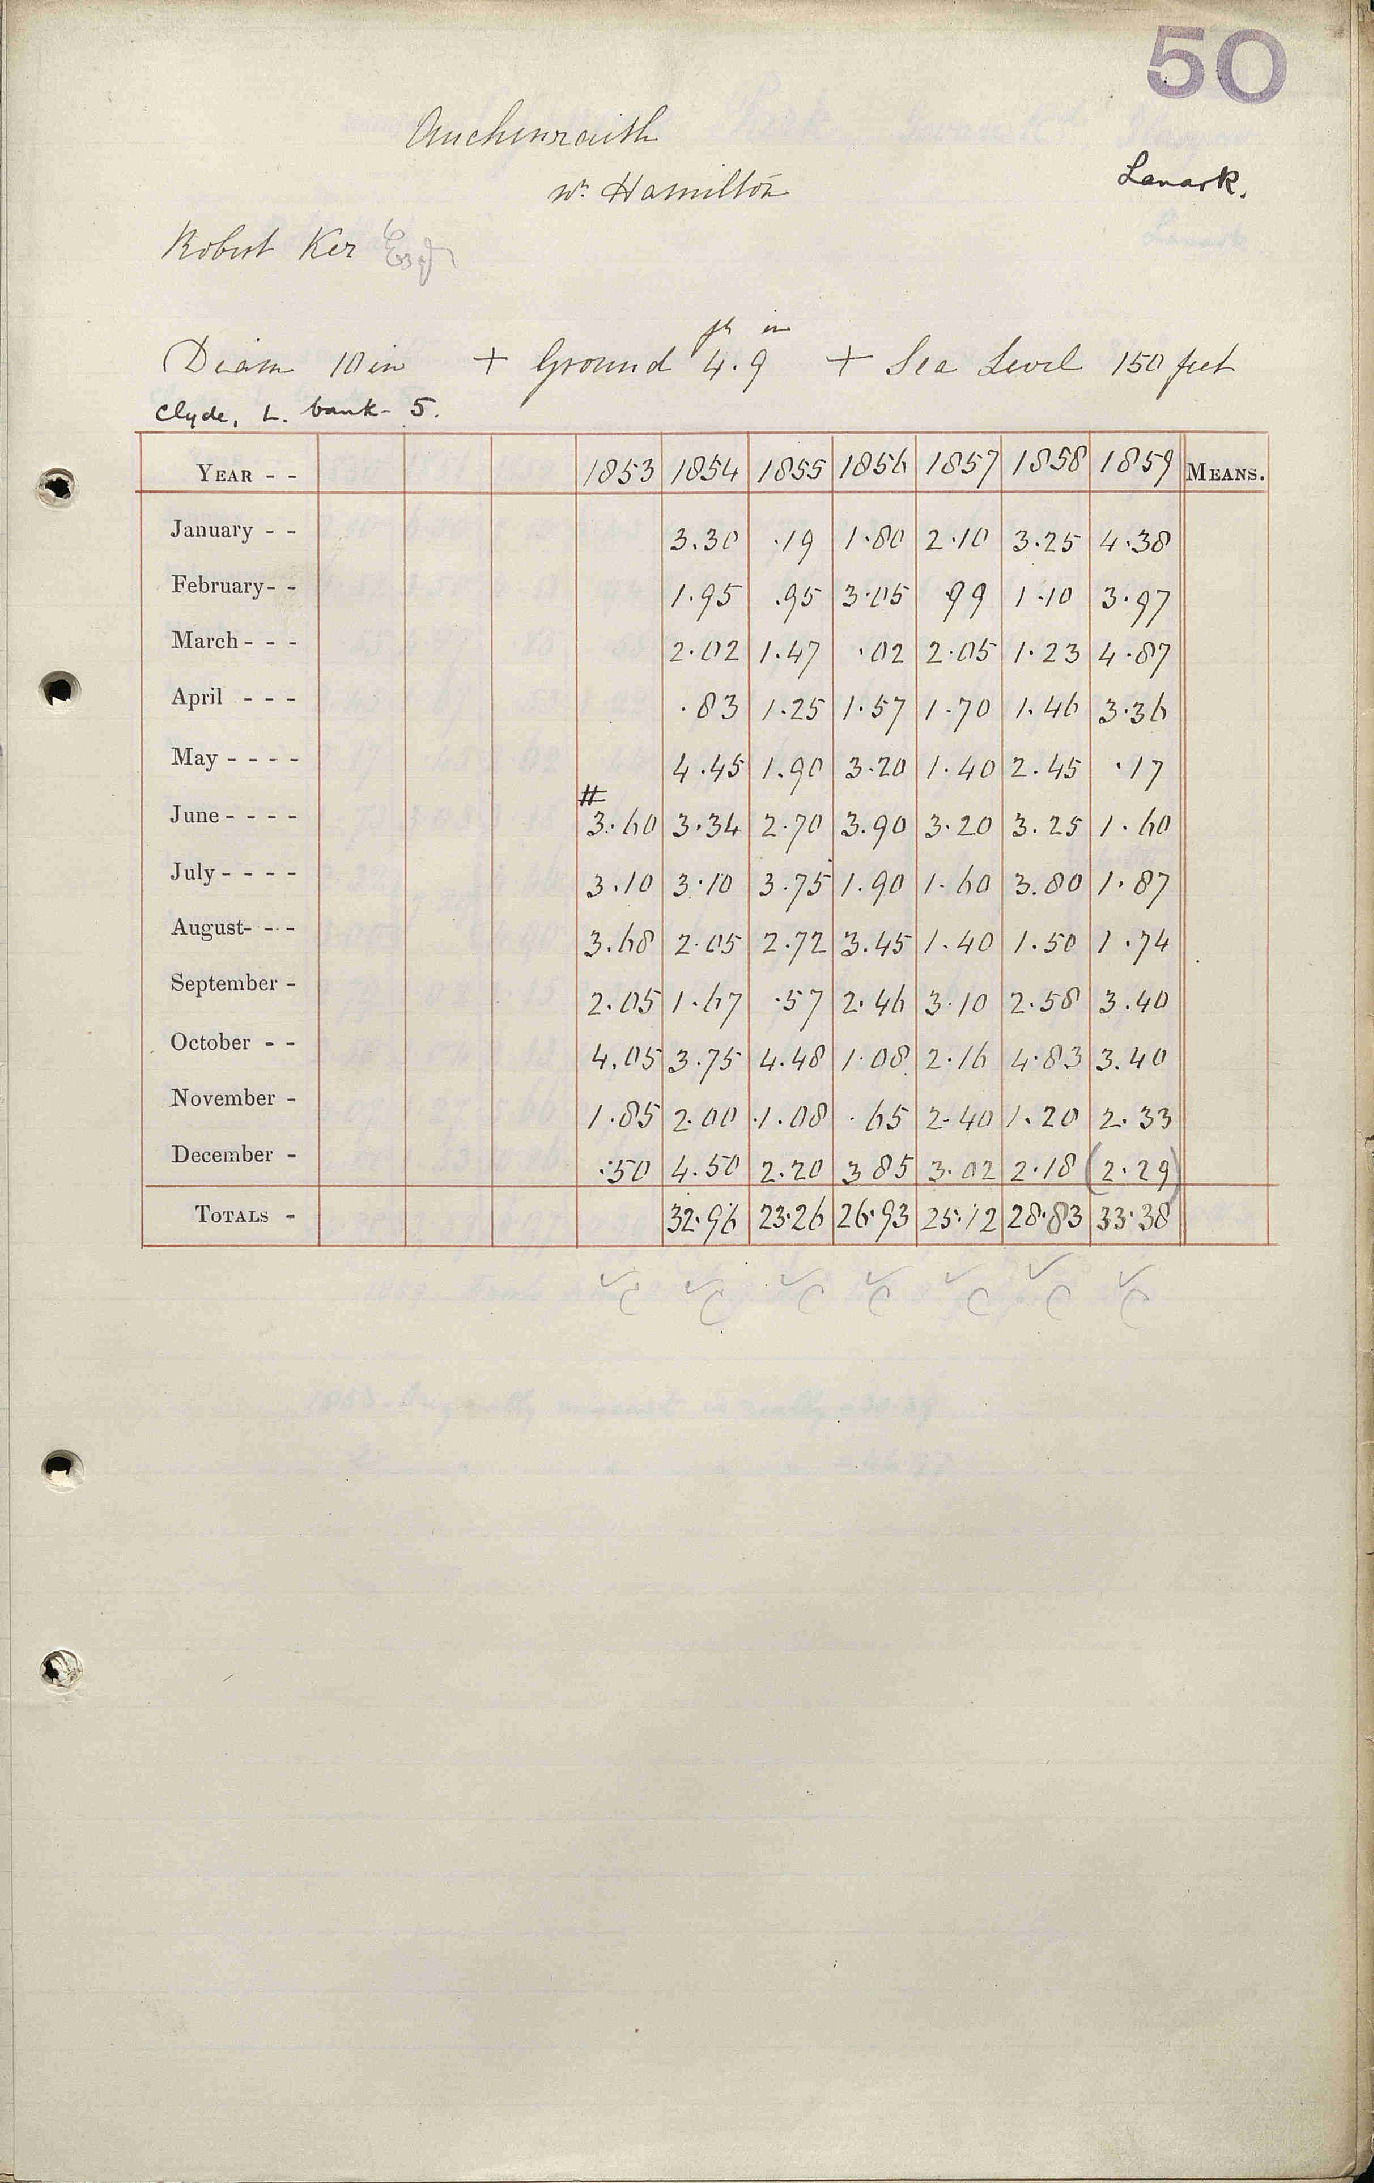 50
Auchinraith
nr. Hamilton
Lanark.
Robert Ker Esqr
ft in
Diam 10 in + Ground 4.9 + Sea Level 150 feet
Clyde, L. bank - 5.
YEAR - - 1853 1854 1855 1856 1857 1858 1859 MEANS.
January - - 3.30 .19 1.80 2.10 3.25 4.38
February - - 1.95 .95 3.05 .99 1.10 3.97
March - - - 2.02 1.47 .02 2.05 1.23 4.87
April - - - .83 1.25 1.57 1.70 1.46 3.36
May - - - - 4.45 1.90 3.20 1.40 2.45 .17
#
June - - - - 3.60 3.34 2.70 3.90 3.20 3.25 1.60
July - - - - 3.10 3.10 3.75 1.90 1.60 3.80 1.87
August - - - 3.68 2.05 2.72 3.45 1.40 1.50 1.74
September - 2.05 1.67 .57 2.46 3.10 2.58 3.40
October - - 4.05 3.75 4.48 1.08 2.16 4.83 3.40
November - 1.85 2.00 1.08 .65 2.40 1.20 2.33
December - .50 4.50 2.20 3.85 3.02 2.18 (2.29)
TOTALS - 32.96 23.26 26.93 25.12 28.83 33.38
✓C ✓C ✓C ✓C ✓C ✓C ✓C